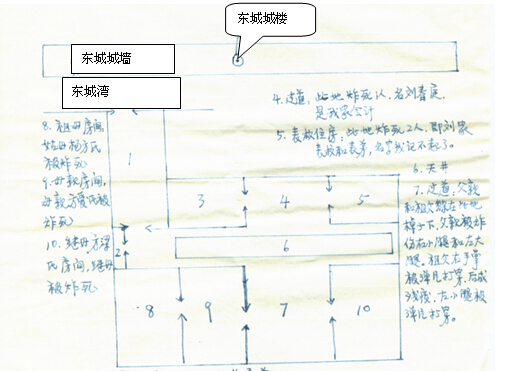 东城城楼
东城城墙
东城湾
4.过道：此地炸死1人，名刘香庭，
是我家公计
5.表叔住房：此地炸死2人，即刘家
表叔和表弟，名字我记不起了。
6.天井
7.过道：父亲
和祖父躲在此地
棹子下，父亲被炸
伤右小腿和左大
腿。祖父右手骨
被弹片打穿，后成
残废，左小腿被
弹片打穿。
8.祖母房间，
姑母杨方氏
被炸死
9.母亲房间，
母亲方 氏被
炸死
10.继母方梁
氏房间，继母
被炸死
1
2
3
4
5
6
8
9
7
10